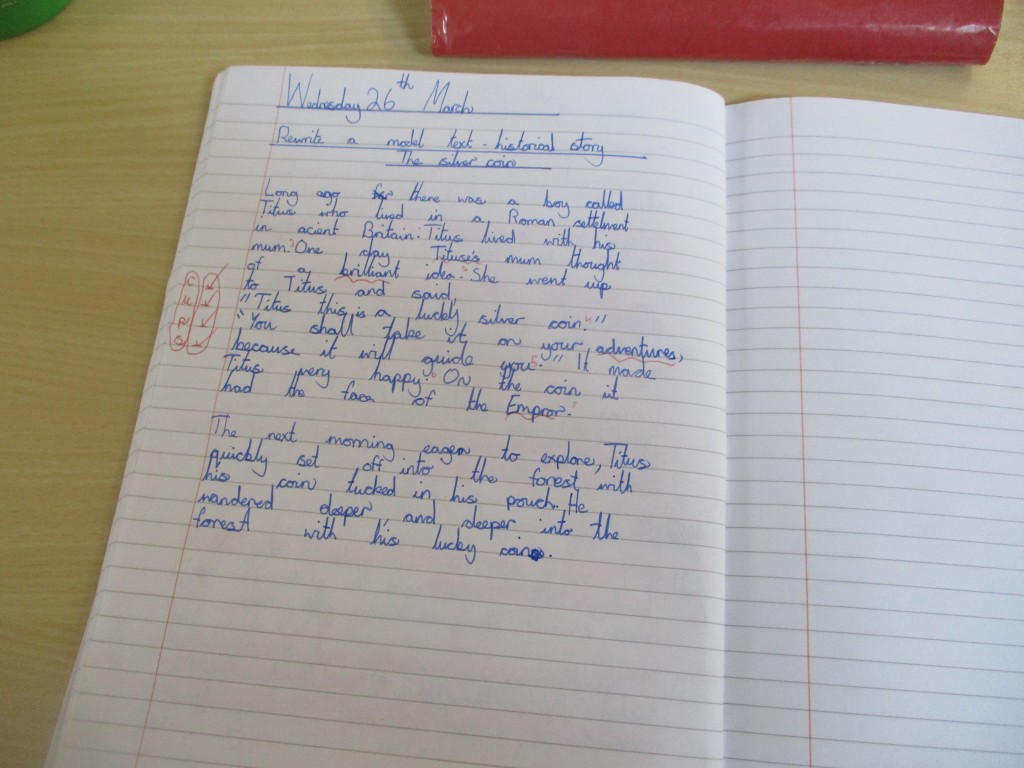 Wednesday 26th March
Rewrite a model text - historical story
The silver coin
Long ago there was a boy called
Titus who lived in a Roman settlment
in acient Britain. Titus lived with his
mum. One day Tituse's mum thought
of a brilliant idea. She went up
to Titus and said,
"Titus this is a lucky silver coin."
"You shall take it on your adventures,
because it will guide you." It made
Titus very happy. On the coin it
had the face of the Empror.
The next morning eager to explore, Titus
quickly set off into the forest with
his coin tucked in his pouch. He
wandered deeper, and deeper into the
forest with his lucky coin.
C
U
P
S